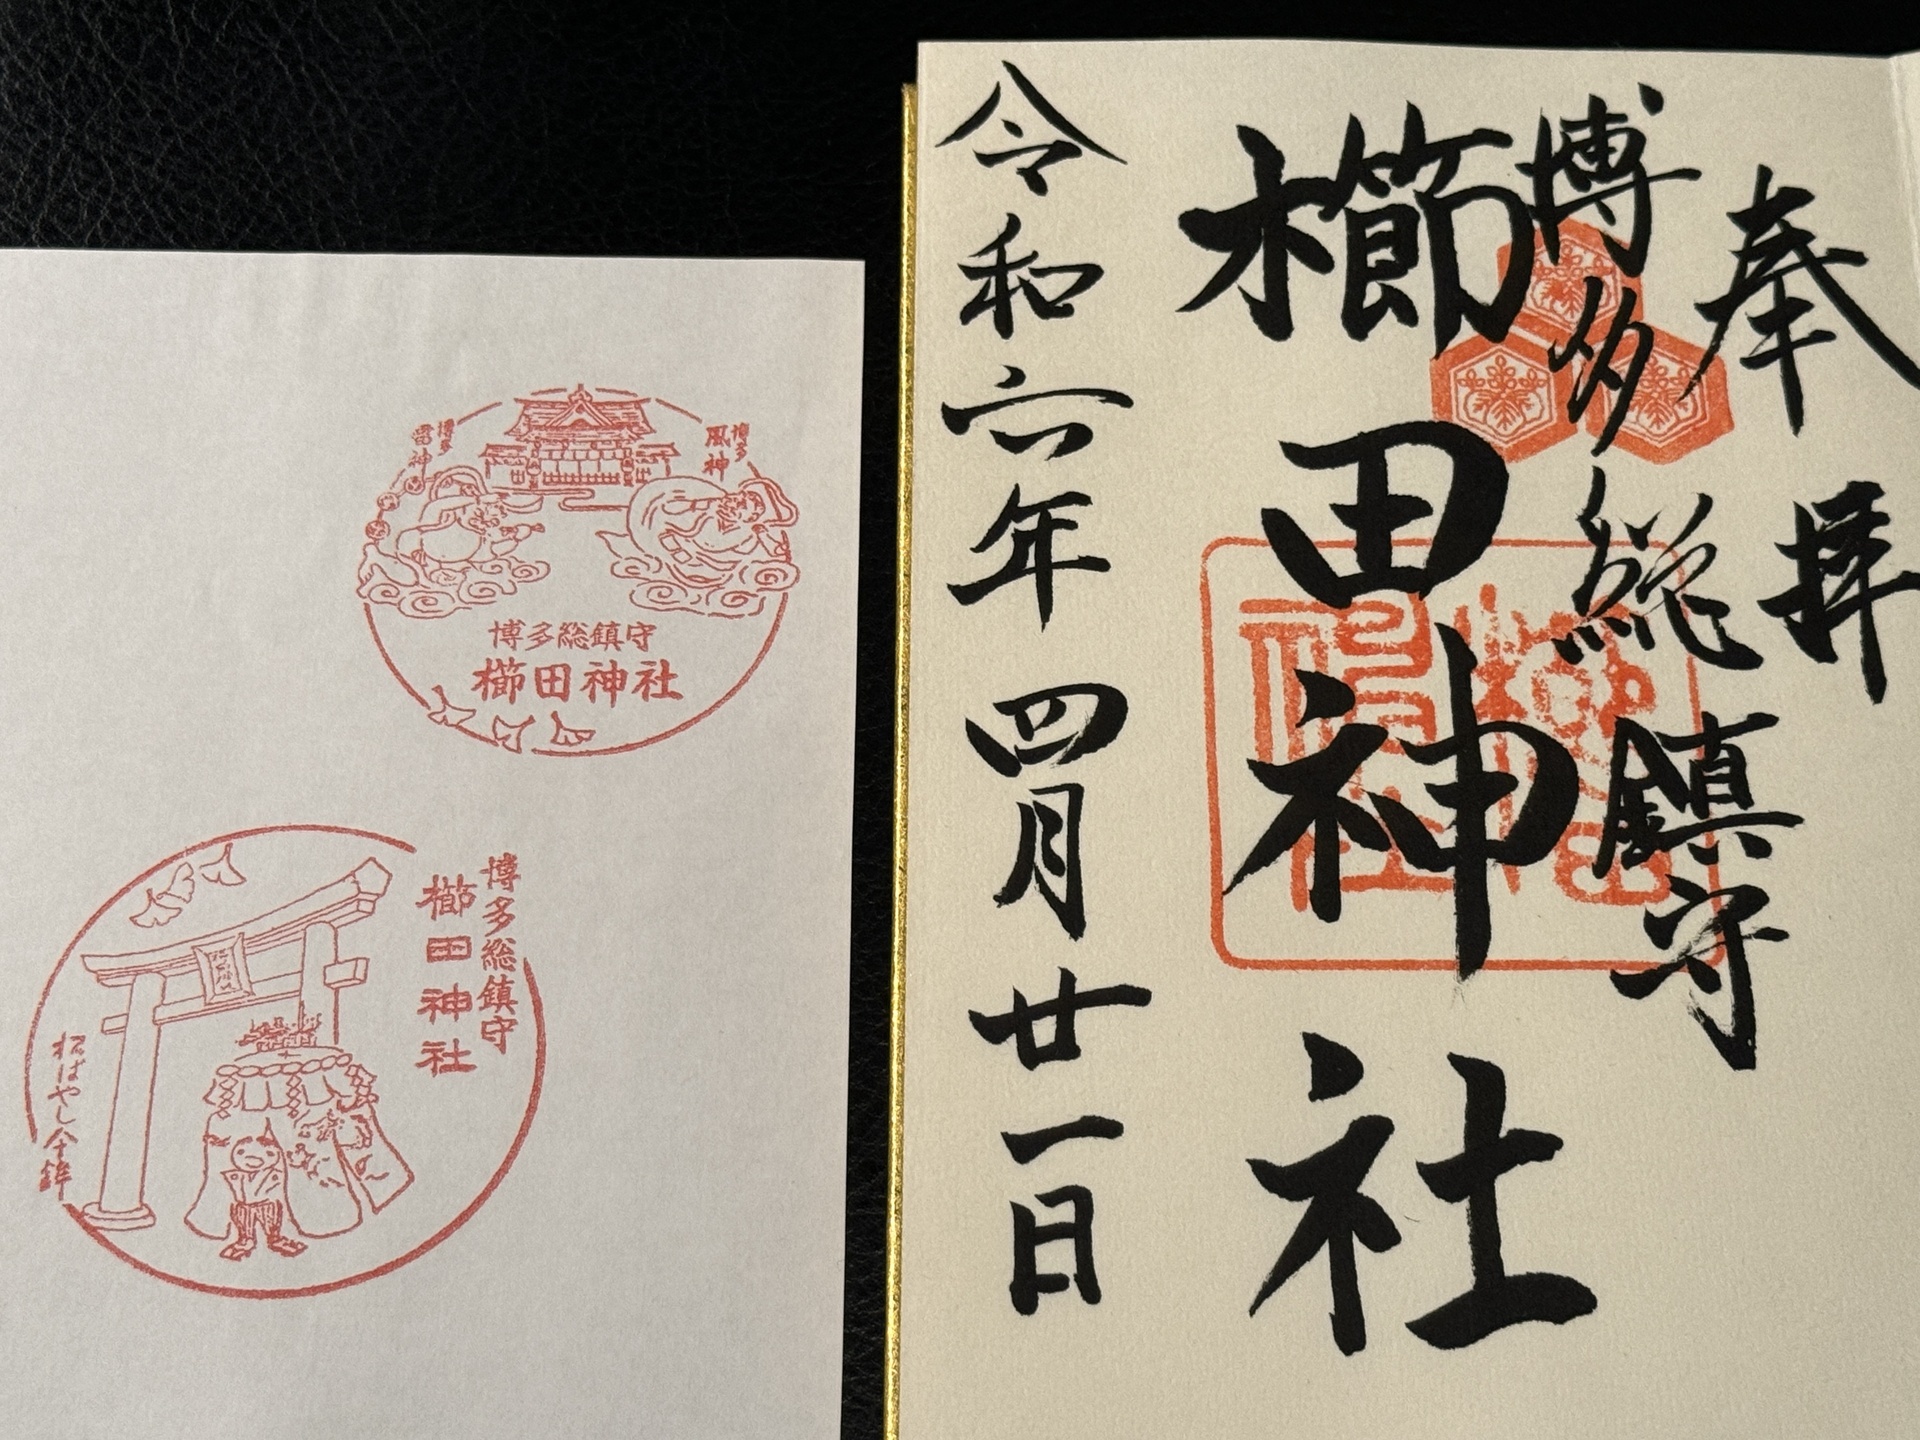 奉拝
博多総鎮守
櫛田神社
令和六年四月廿一日
博多
風神
博多
雷神
博多総鎮守
櫛田神社
博多総鎮守
櫛田神社
松ばやし全鉾